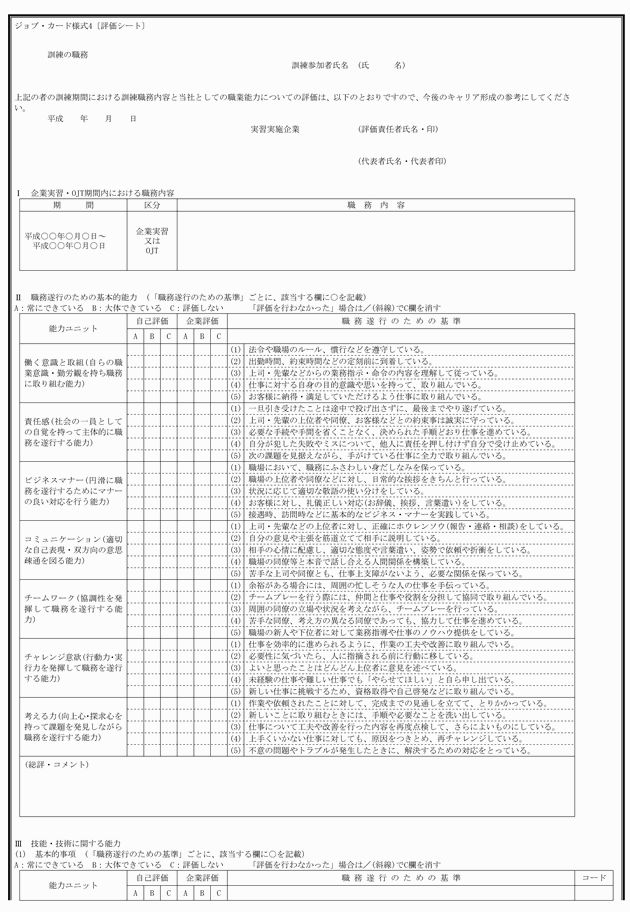 ジョブ・カード様式4〔評価シート〕
訓練の職務
訓練参加者氏名 (氏 名)
上記の者の訓練期間における訓練職務内容と当社としての職業能力についての評価は、以下のとおりですので、今後のキャリア形成の参考にしてくださ
い。
平成 年 月 日
実習実施企業 (評価責任者氏名・印)
(代表者氏名・代表者印)
Ⅰ 企業実習・OJT期間内における職務内容
期 間 区分 職 務 内 容
平成○○年○月○日~
平成○○年○月○日
企業実習
又は
OJT
Ⅱ 職務遂行のための基本的能力 (「職務遂行のための基準」ごとに、該当する欄に○を記載)
A:常にできている B:大体できている C:評価しない 「評価を行わなかった」場合は/(斜線)でC欄を消す
能力ユニット 自己評価 企業評価 職 務 遂 行 の た め の 基 準
A B C A B C
働く意識と取組(自らの職
業意識・勤労観を持ち職務
に取り組む能力)
(1) 法令や職場のルール、慣行などを遵守している。
(2) 出勤時間、約束時間などの定刻前に到着している。
(3) 上司・先輩などからの業務指示・命令の内容を理解して従っている。
(4) 仕事に対する自身の目的意識や思いを持って、取り組んでいる。
(5) お客様に納得・満足していただけるよう仕事に取り組んでいる。
責任感(社会の一員として
の自覚を持って主体的に職
務を遂行する能力)
(1) 一旦引き受けたことは途中で投げ出さずに、最後までやり遂げている。
(2) 上司・先輩の上位者や同僚、お客様などとの約束事は誠実に守っている。
(3) 必要な手続や手間を省くことなく、決められた手順どおり仕事を進めている。
(4) 自分が犯した失敗やミスについて、他人に責任を押し付けず自分で受け止めている。
(5) 次の課題を見据えながら、手がけている仕事に全力で取り組んでいる。
ビジネスマナー(円滑に職
務を遂行するためにマナー
の良い対応を行う能力)
(1) 職場において、職務にふさわしい身だしなみを保っている。
(2) 職場の上位者や同僚などに対し、日常的な挨拶をきちんと行っている。
(3) 状況に応じて適切な敬語の使い分けをしている。
(4) お客様に対し、礼儀正しい対応(お辞儀、挨拶、言葉遣い)をしている。
(5) 接遇時、訪問時などに基本的なビジネス・マナーを実践している。
コミュニケーション(適切
な自己表現・双方向の意思
疎通を図る能力)
(1) 上司・先輩などの上位者に対し、正確にホウレンソウ(報告・連絡・相談)をしている。
(2) 自分の意見や主張を筋道立てて相手に説明している。
(3) 相手の心情に配慮し、適切な態度や言葉遣い、姿勢で依頼や折衝をしている。
(4) 職場の同僚等と本音で話し合える人間関係を構築している。
(5) 苦手な上司や同僚とも、仕事上支障がないよう、必要な関係を保っている。
チームワーク(協調性を発
揮して職務を遂行する能
力)
(1) 余裕がある場合には、周囲の忙しそうな人の仕事を手伝っている。
(2) チームプレーを行う際には、仲間と仕事や役割を分担して協同で取り組んでいる。
(3) 周囲の同僚の立場や状況を考えながら、チームプレーを行っている。
(4) 苦手な同僚、考え方の異なる同僚であっても、協力して仕事を進めている。
(5) 職場の新人や下位者に対して業務指導や仕事のノウハウ提供をしている。
チャレンジ意欲(行動力・実
行力を発揮して職務を遂行
する能力)
(1) 仕事を効率的に進められるように、作業の工夫や改善に取り組んでいる。
(2) 必要性に気づいたら、人に指摘される前に行動に移している。
(3) よいと思ったことはどんどん上位者に意見を述べている。
(4) 未経験の仕事や難しい仕事でも「やらせてほしい」と自ら申し出ている。
(5) 新しい仕事に挑戦するため、資格取得や自己啓発などに取り組んでいる。
考える力(向上心・探求心を
持って課題を発見しながら
職務を遂行する能力)
(1) 作業や依頼されたことに対して、完成までの見通しを立てて、とりかかっている。
(2) 新しいことに取り組むときには、手順や必要なことを洗い出している。
(3) 仕事について工夫や改善を行った内容を再度点検して、さらによいものにしている。
(4) 上手くいかない仕事に対しても、原因をつきとめ、再チャレンジしている。
(5) 不意の問題やトラブルが発生したときに、解決するための対応をとっている。
(総評・コメント)
Ⅲ 技能・技術に関する能力
(1) 基本的事項 (「職務遂行のための基準」ごとに、該当する欄に○を記載)
A:常にできている B:大体できている C:評価しない 「評価を行わなかった」場合は/(斜線)でC欄を消す
能力ユニット 自己評価 企業評価 職 務 遂 行 の た め の 基 準 コード
A B C A B C